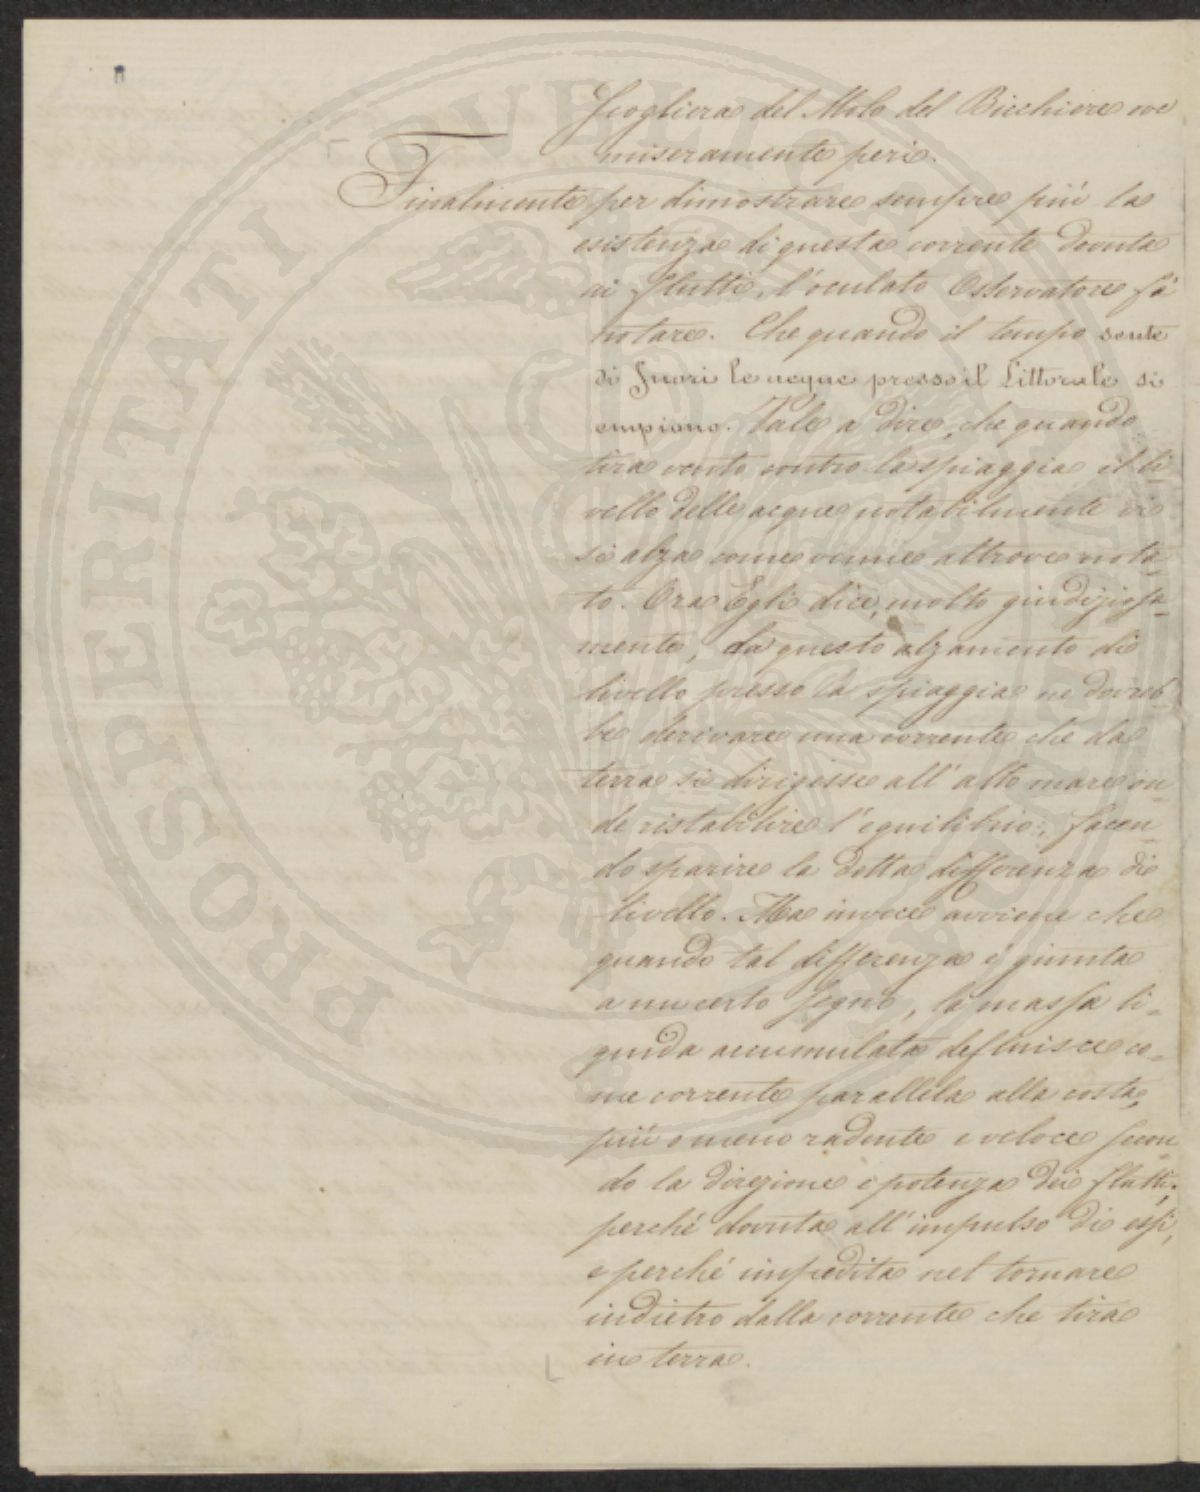 Scogliera del Molo del Bicchiere ove
miseramente perì.
Finalmente per dimostrare sempre più la
esistenza di questa corrente dovuta
ai flutti, l'oculato Osservatore fà
notare. Che quando il tempo sente
di fuori le acque presso il Littorale si
empiono. Vale a dire, che quando
tira vento contro la spiaggia il li-
vello delle acque notabilmente vi
si alza come venne altrove nota-
to. Ora Egli dice, molto giudiziosa-
mente, da questo alzamento di
livello presso la spiaggia ne dovreb-
be derivare una corrente che da
terra si dirigisse all' alto mare on-
de ristabilire l'equilibrio, facen-
do sparire la detta differenza di
livello. Ma invece avviene che
quando tal differenza é giunta
a un certo segno, la massa li-
quida accumulata defluisce co-
me corrente parallela alla costa,
più o meno radente e veloce secon-
do la direzione e potenza dei flutti;
perché dovuta all' impulso di essi,
e perché impedita nel tornare
indietro dalla corrente che tira
in terra.
PROSPERITATI PUBLICAE